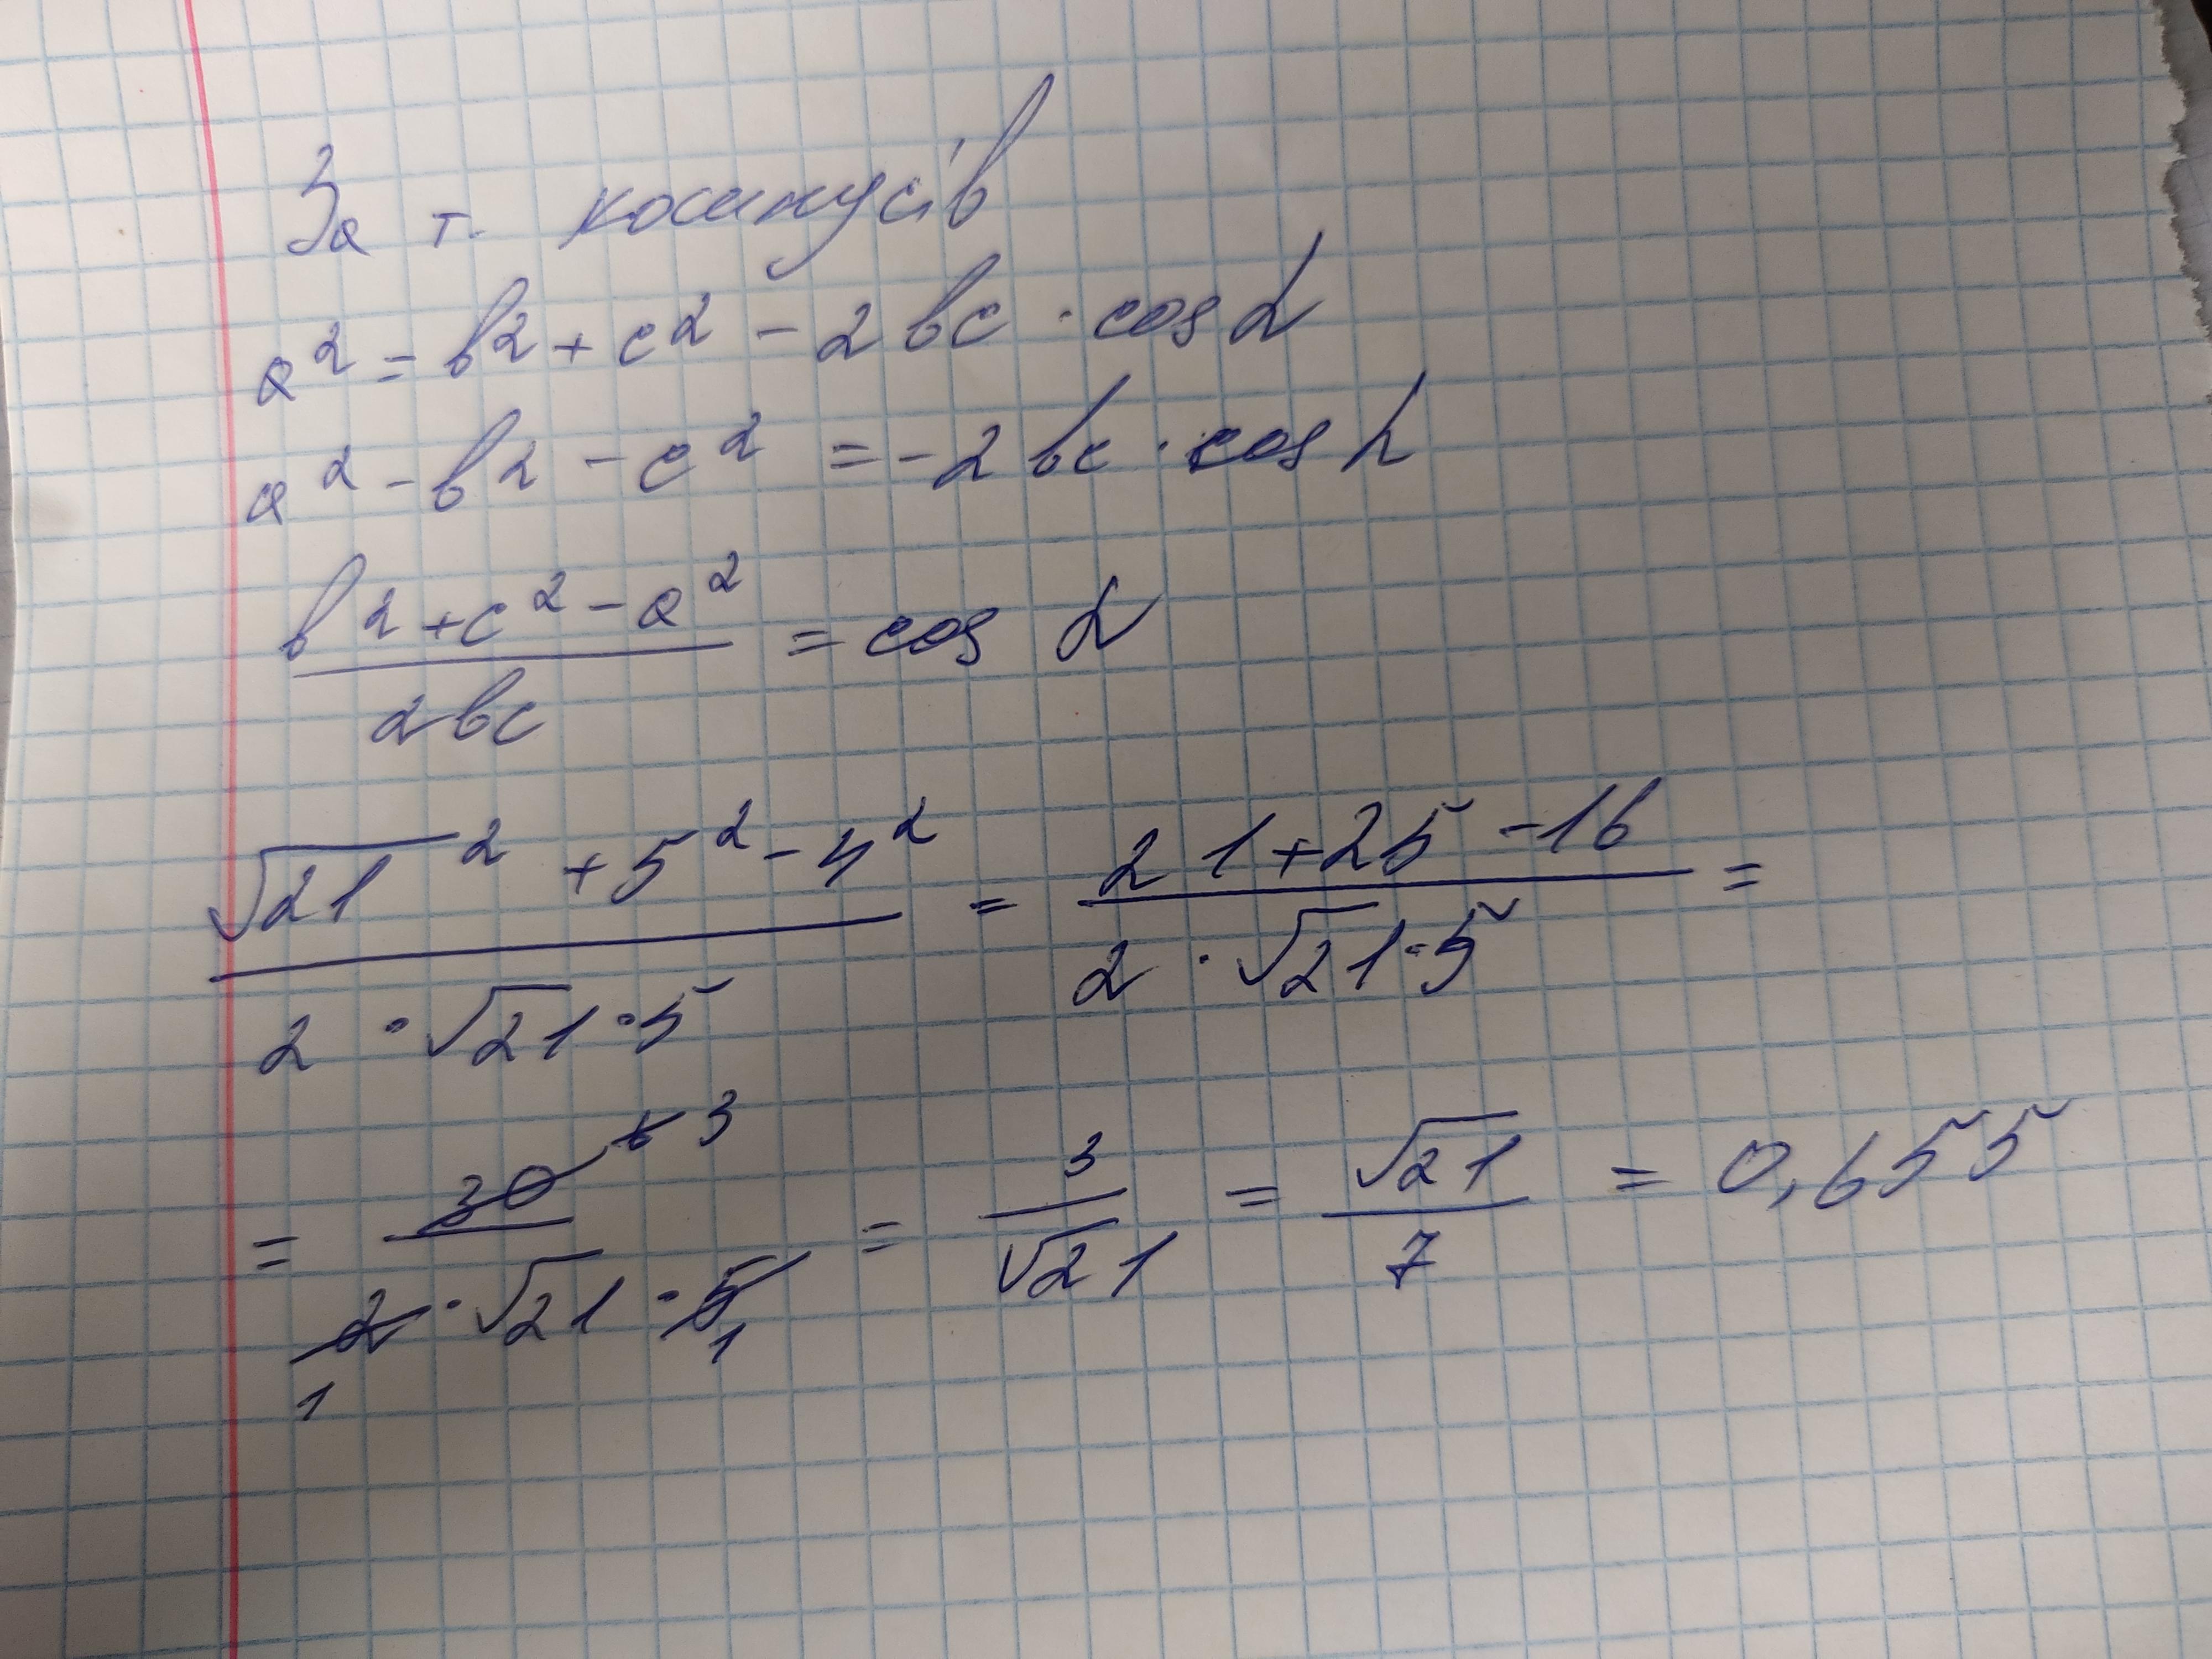 За т. косинусів
a² = b² + c² - 2bc · cos α
a² - b² - c² = -2bc · cos α
(b² + c² - a²) / 2bc = cos α
(√21² + 5² - 4²) / (2 · √21 · 5) = (21 + 25 - 16) / (2 · √21 · 5) =
= 30 6 3 / (2 1 · √21 · 5 1) = 3 / √21 = √21 / 7 = 0,655